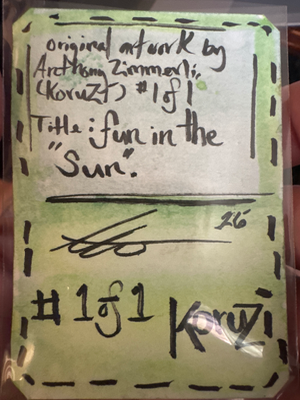 original artwork by
Anthony Zimmerli,
(KoruZi) #1of1
Title: fun in the
"Sun".
26
# 1of1 KoruZi